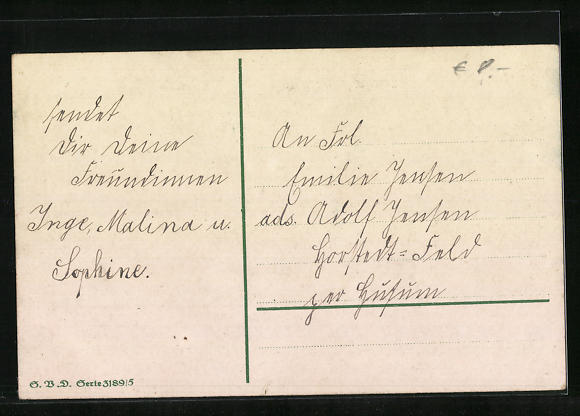 € 8,-
sendet
Dir Deine
Freundinnen
Inge, Malina u.
Sophine.
An Frl.
Emilie Jensen
ads. Adolf Jensen
Horstedt=Feld
per Husum
S. V. D. Serie 3189/5